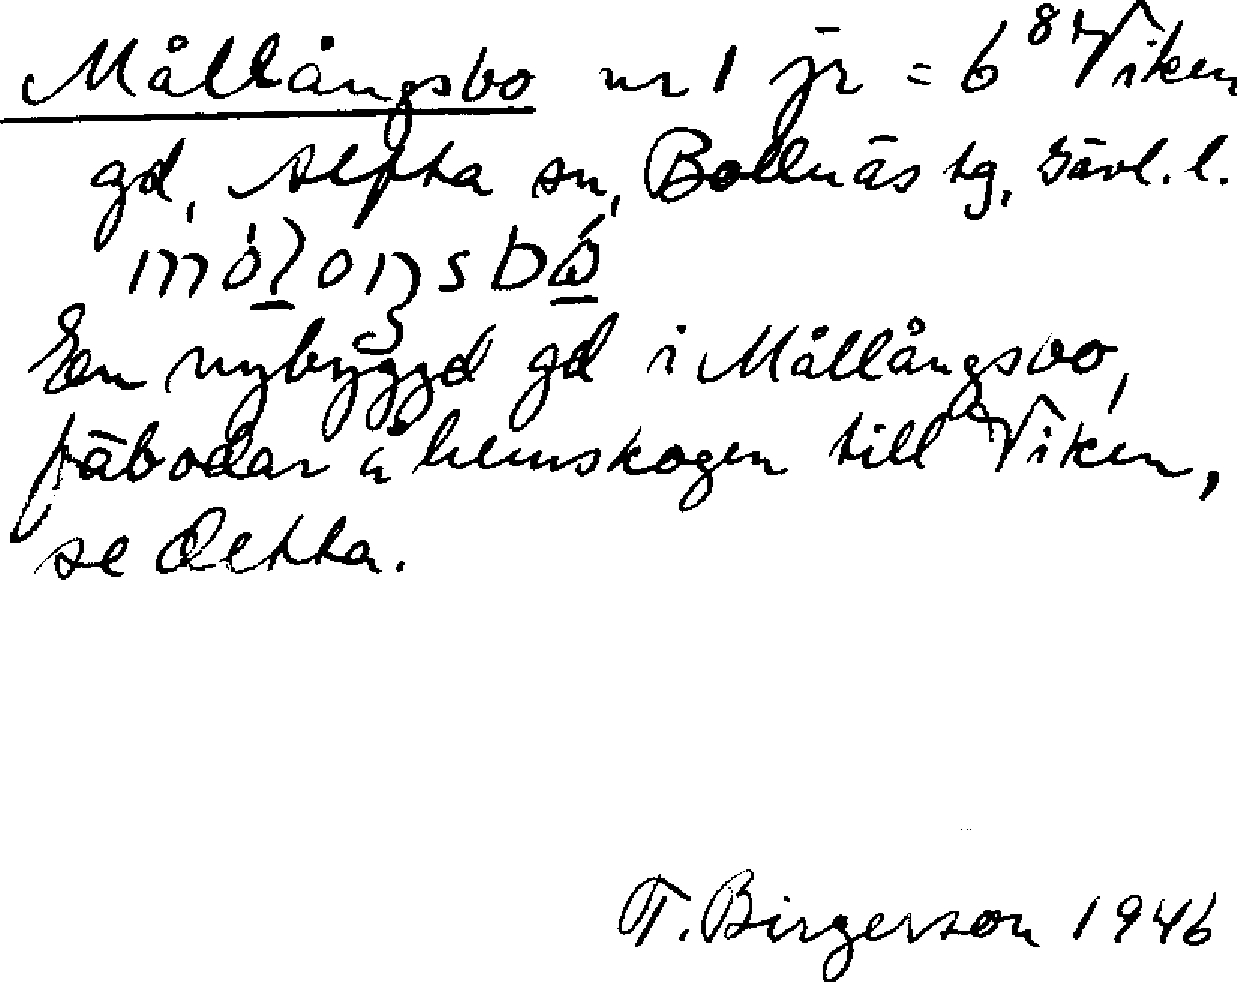 Mållångsbo nr 1 jr = 6⁸⁴ Viken
gd, Alfta sn, Bollnäs tg, Gävl. l.
En nybyggd gd i Mållångsbo,
fäbodar å hemskogen till Viken,
se detta.
T. Birgerson 1946